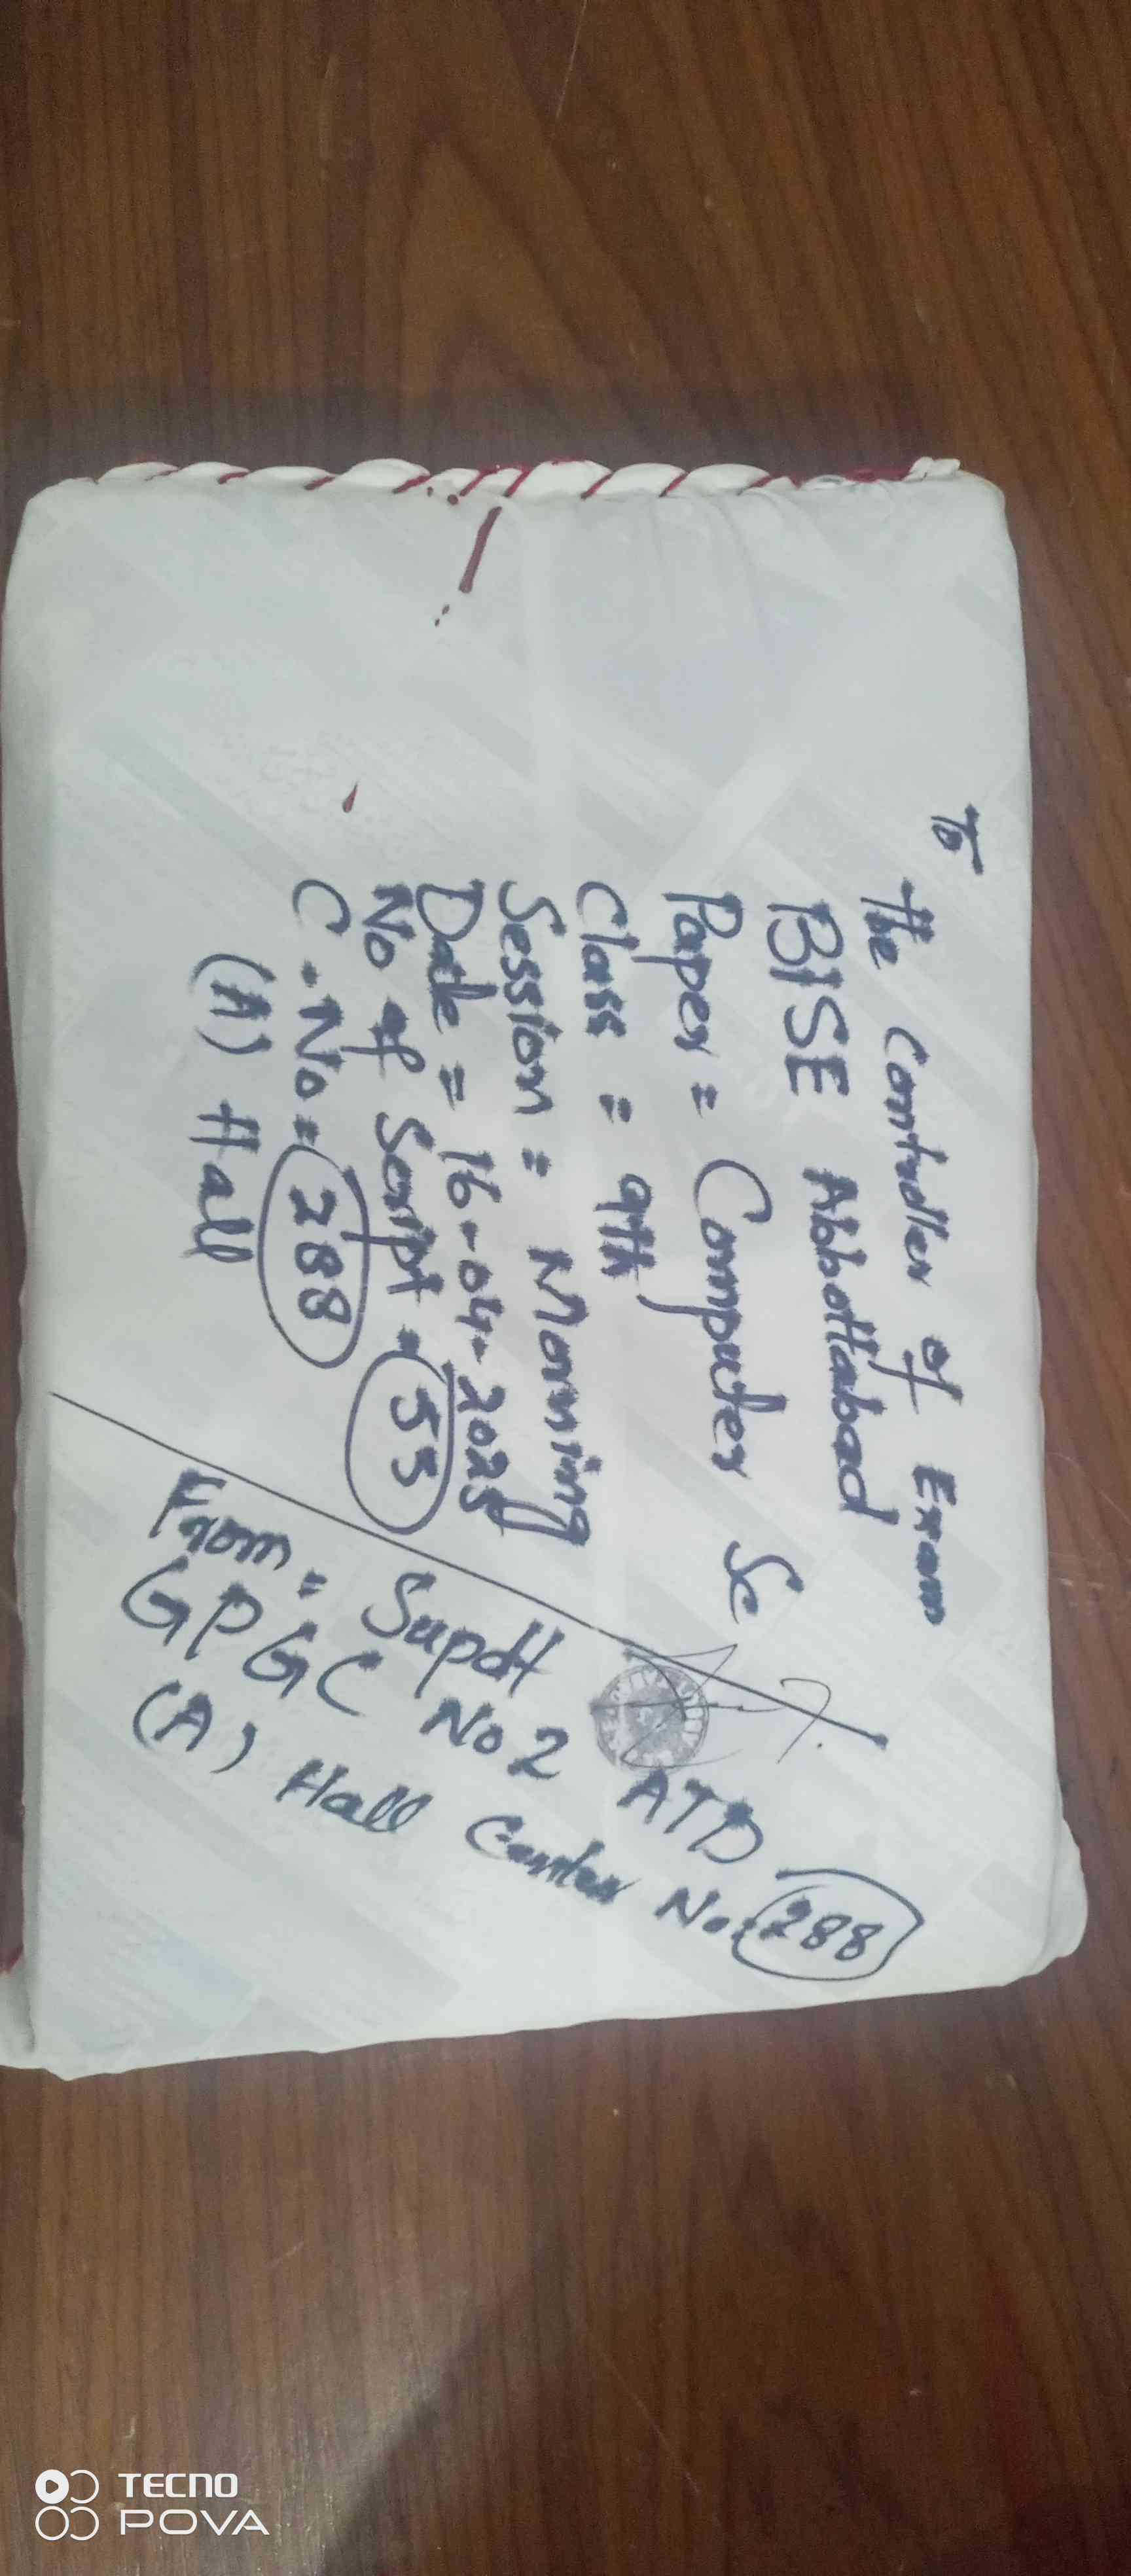 To
the Controller of Exam
BISE Abbottabad
Paper = Computer Sc
Class = 9th
Session = Morning
Date = 16-04-2025
No of Script = 55
C.No = 288
(A) Hall
From = Supdt
GPGC No 2 ATD
(A) Hall Center No: 288
TECNO
POVA